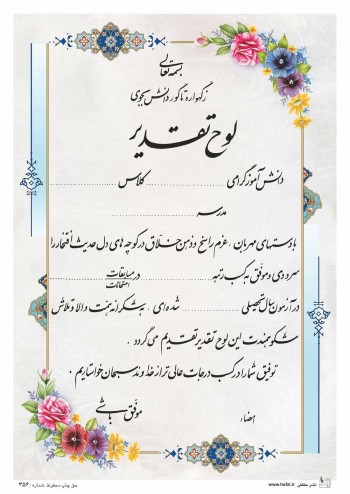 بسمه تعالی
زگهواره تا گور دانش بجوی
لوح تقدیر
دانش آموز گرامی ........................ کلاس ........................
مدرسه ........................
با دستهای مهربان ، عزم راسخ و ذهن خلّاق در کوچه های دل حدیث افتخار را
سرودی و موفّق به کسب رتبه ........................ در مسابقات امتحانات
در آزمون سال تحصیلی ........................ شده ای ، به شکرانه همّت والا و تلاش
شکوهمندت این لوح تقدیر تقدیم می گردد .
توفیق شما را در کسب درجات عالی تر از خداوند سبحان خواستاریم .
موفّق باشی
امضاء :
حق چاپ محفوظ شماره: ۳۵۶
نشر حافظی www.hefzi.ir